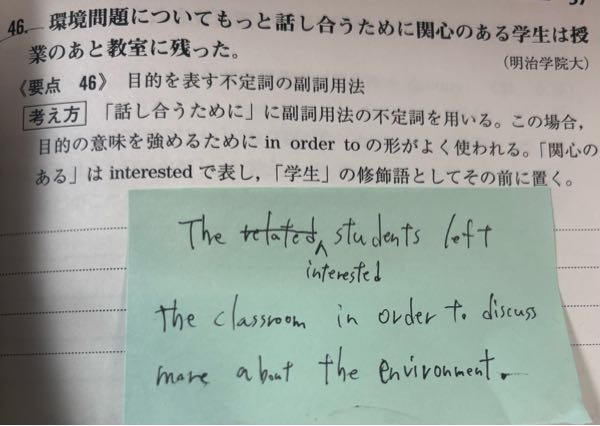 46. 環境問題についてもっと話し合うために関心のある学生は授
業のあと教室に残った。
(明治学院大)
《要点 46》 目的を表す不定詞の副詞用法
考え方 「話し合うために」に副詞用法の不定詞を用いる。この場合,
目的の意味を強めるために in order to の形がよく使われる。「関心の
ある」は interested で表し,「学生」の修飾語としてその前に置く。
The related students left
interested
the classroom in order to discuss
more about the environment.